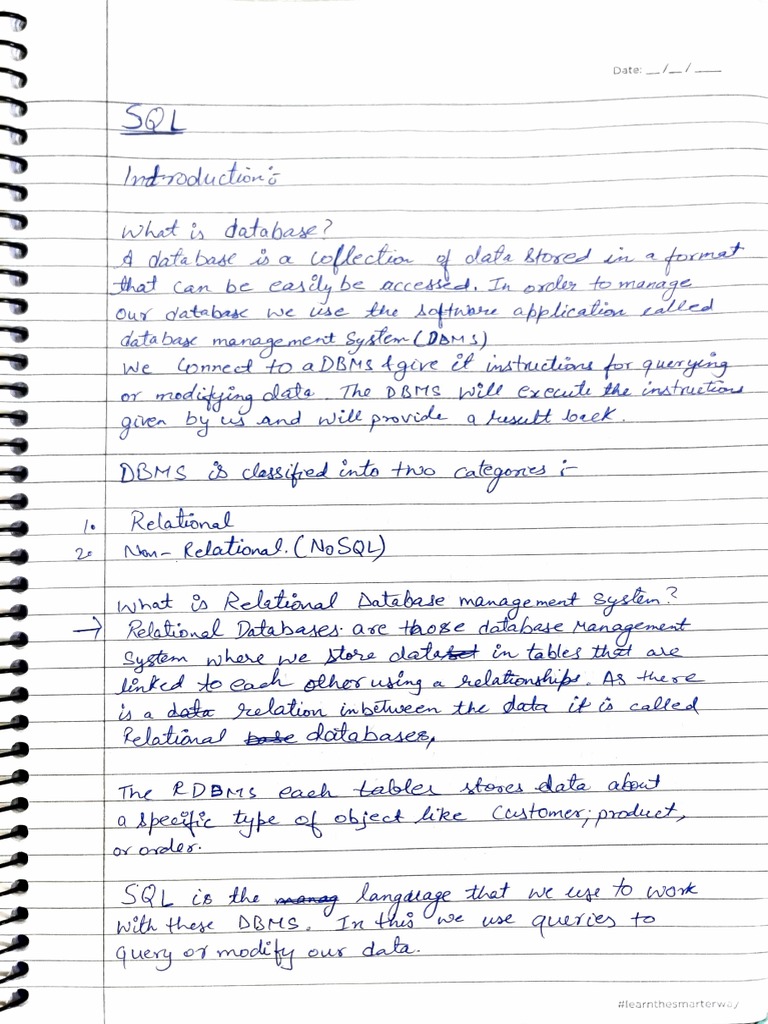 Date: __/__/____
SQL
Introduction:-
What is database?
A database is a collection of data stored in a format
that can be easily be accessed. In order to manage
our database we use the software application called
database management System (DBMS)
We Connect to a DBMS & give it instructions for querying
or modifying data. The DBMS will execute the instructions
given by us and will provide a result back.
DBMS is classified into two categories :-
1. Relational
2. Non-Relational. (NoSQL)
What is Relational Database management System?
→ Relational Databases are those database Management
System where we store dataset in tables that are
linked to each other using a relationships. As there
is a data relation inbetween the data it is called
Relational base databases,
The RDBMS each tables stores data about
a specific type of object like Customer, product,
or order.
SQL is the manag language that we use to work
with these DBMS. In this we use queries to
query or modify our data.
#learnthesmarterway